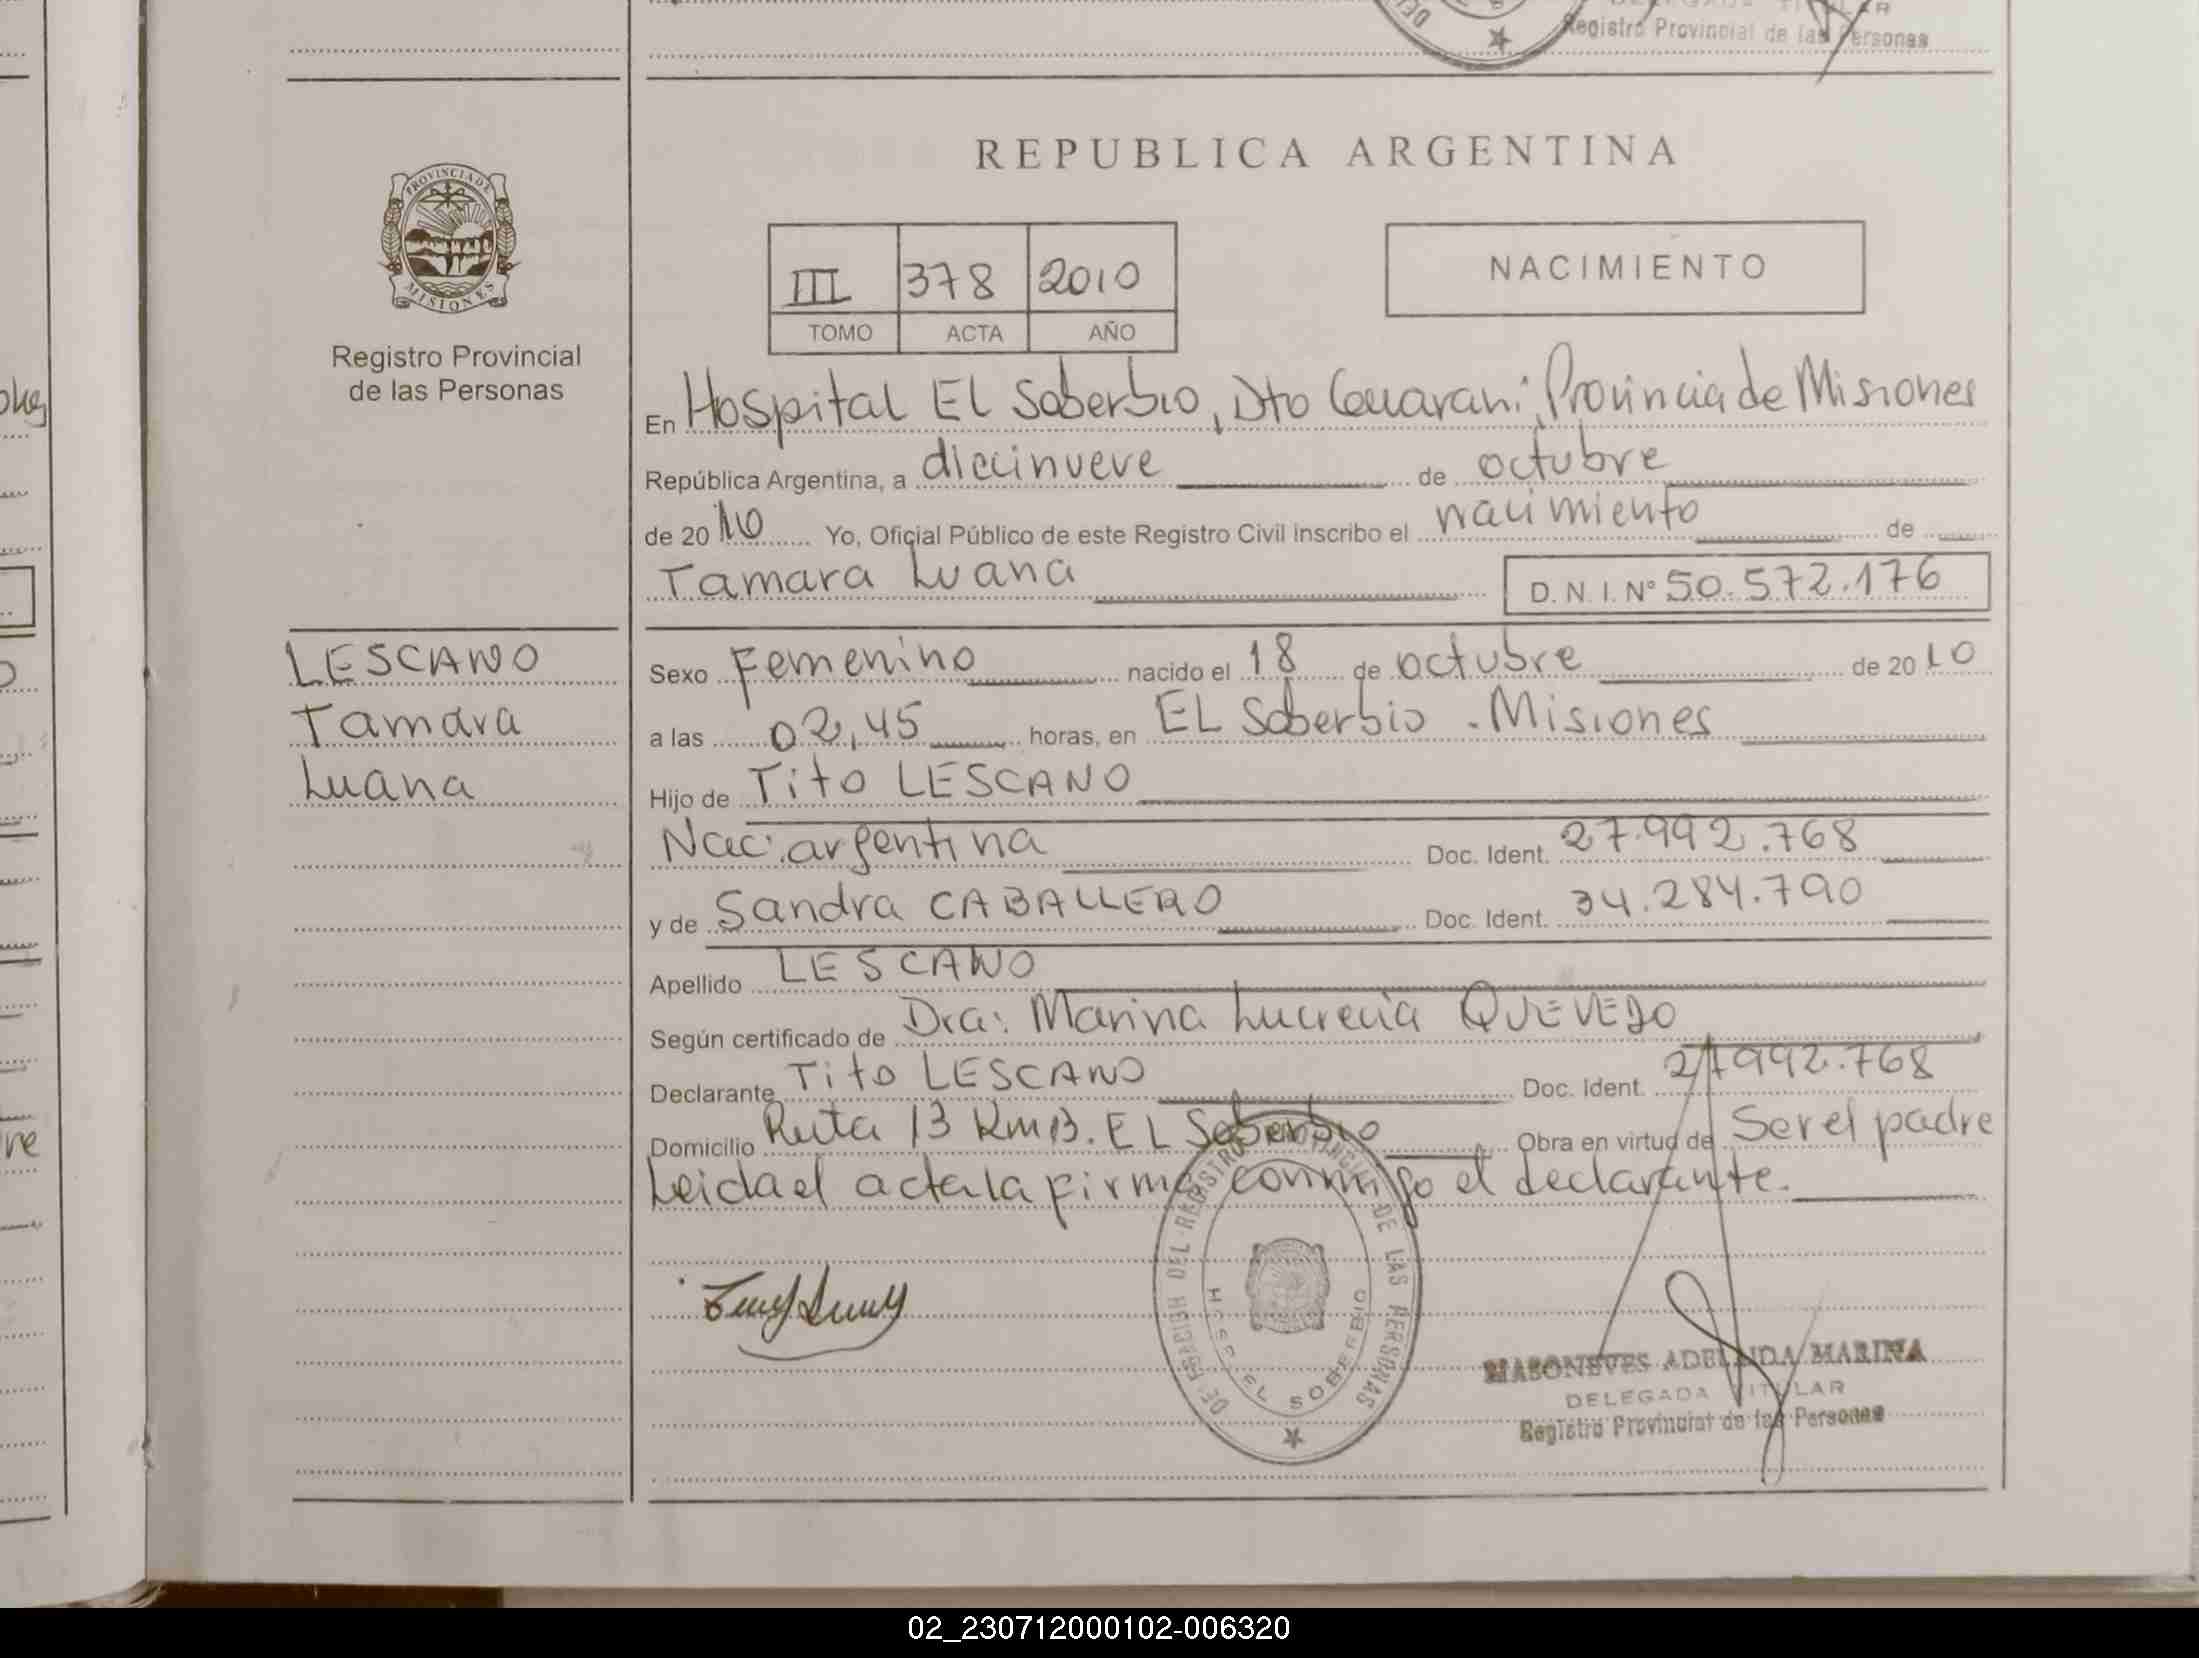 TULAR
Registro Provincial de las Personas
PROVINCIA DE
MISIONES
Registro Provincial
de las Personas
REPUBLICA ARGENTINA
III 378 2010
TOMO ACTA AÑO
NACIMIENTO
En Hospital El Soberbio, Dto Guarani, Provincia de Misiones
República Argentina, a diecinueve de octubre
de 20 10 Yo, Oficial Público de este Registro Civil inscribo el nacimiento de
Tamara Luana D.N.I. Nº 50.572.176
LESCANO
Tamara
Luana
Sexo Femenino nacido el 18 de octubre de 20 10
a las 02,45 horas, en EL Soberbio . Misiones
Hijo de Tito LESCANO
Nac. argentina Doc. Ident. 27.992.768
y de Sandra CABALLERO Doc. Ident. 34.284.790
Apellido LESCANO
Según certificado de Dra: Marina Lucrecia QUEVEDO
Declarante Tito LESCANO Doc. Ident. 27992.768
Domicilio Ruta 13 Km 13. EL Soberbio Obra en virtud de Ser el padre
Leida el acta la firma conmigo el declarante.
DEL REGISTRO PROVINCIAL DE LAS PERSONAS
EL SOBERBIO
MASONEVES ADELAIDA MARINA
DELEGADA TITULAR
Registro Provincial de las Personas
02_230712000102-006320